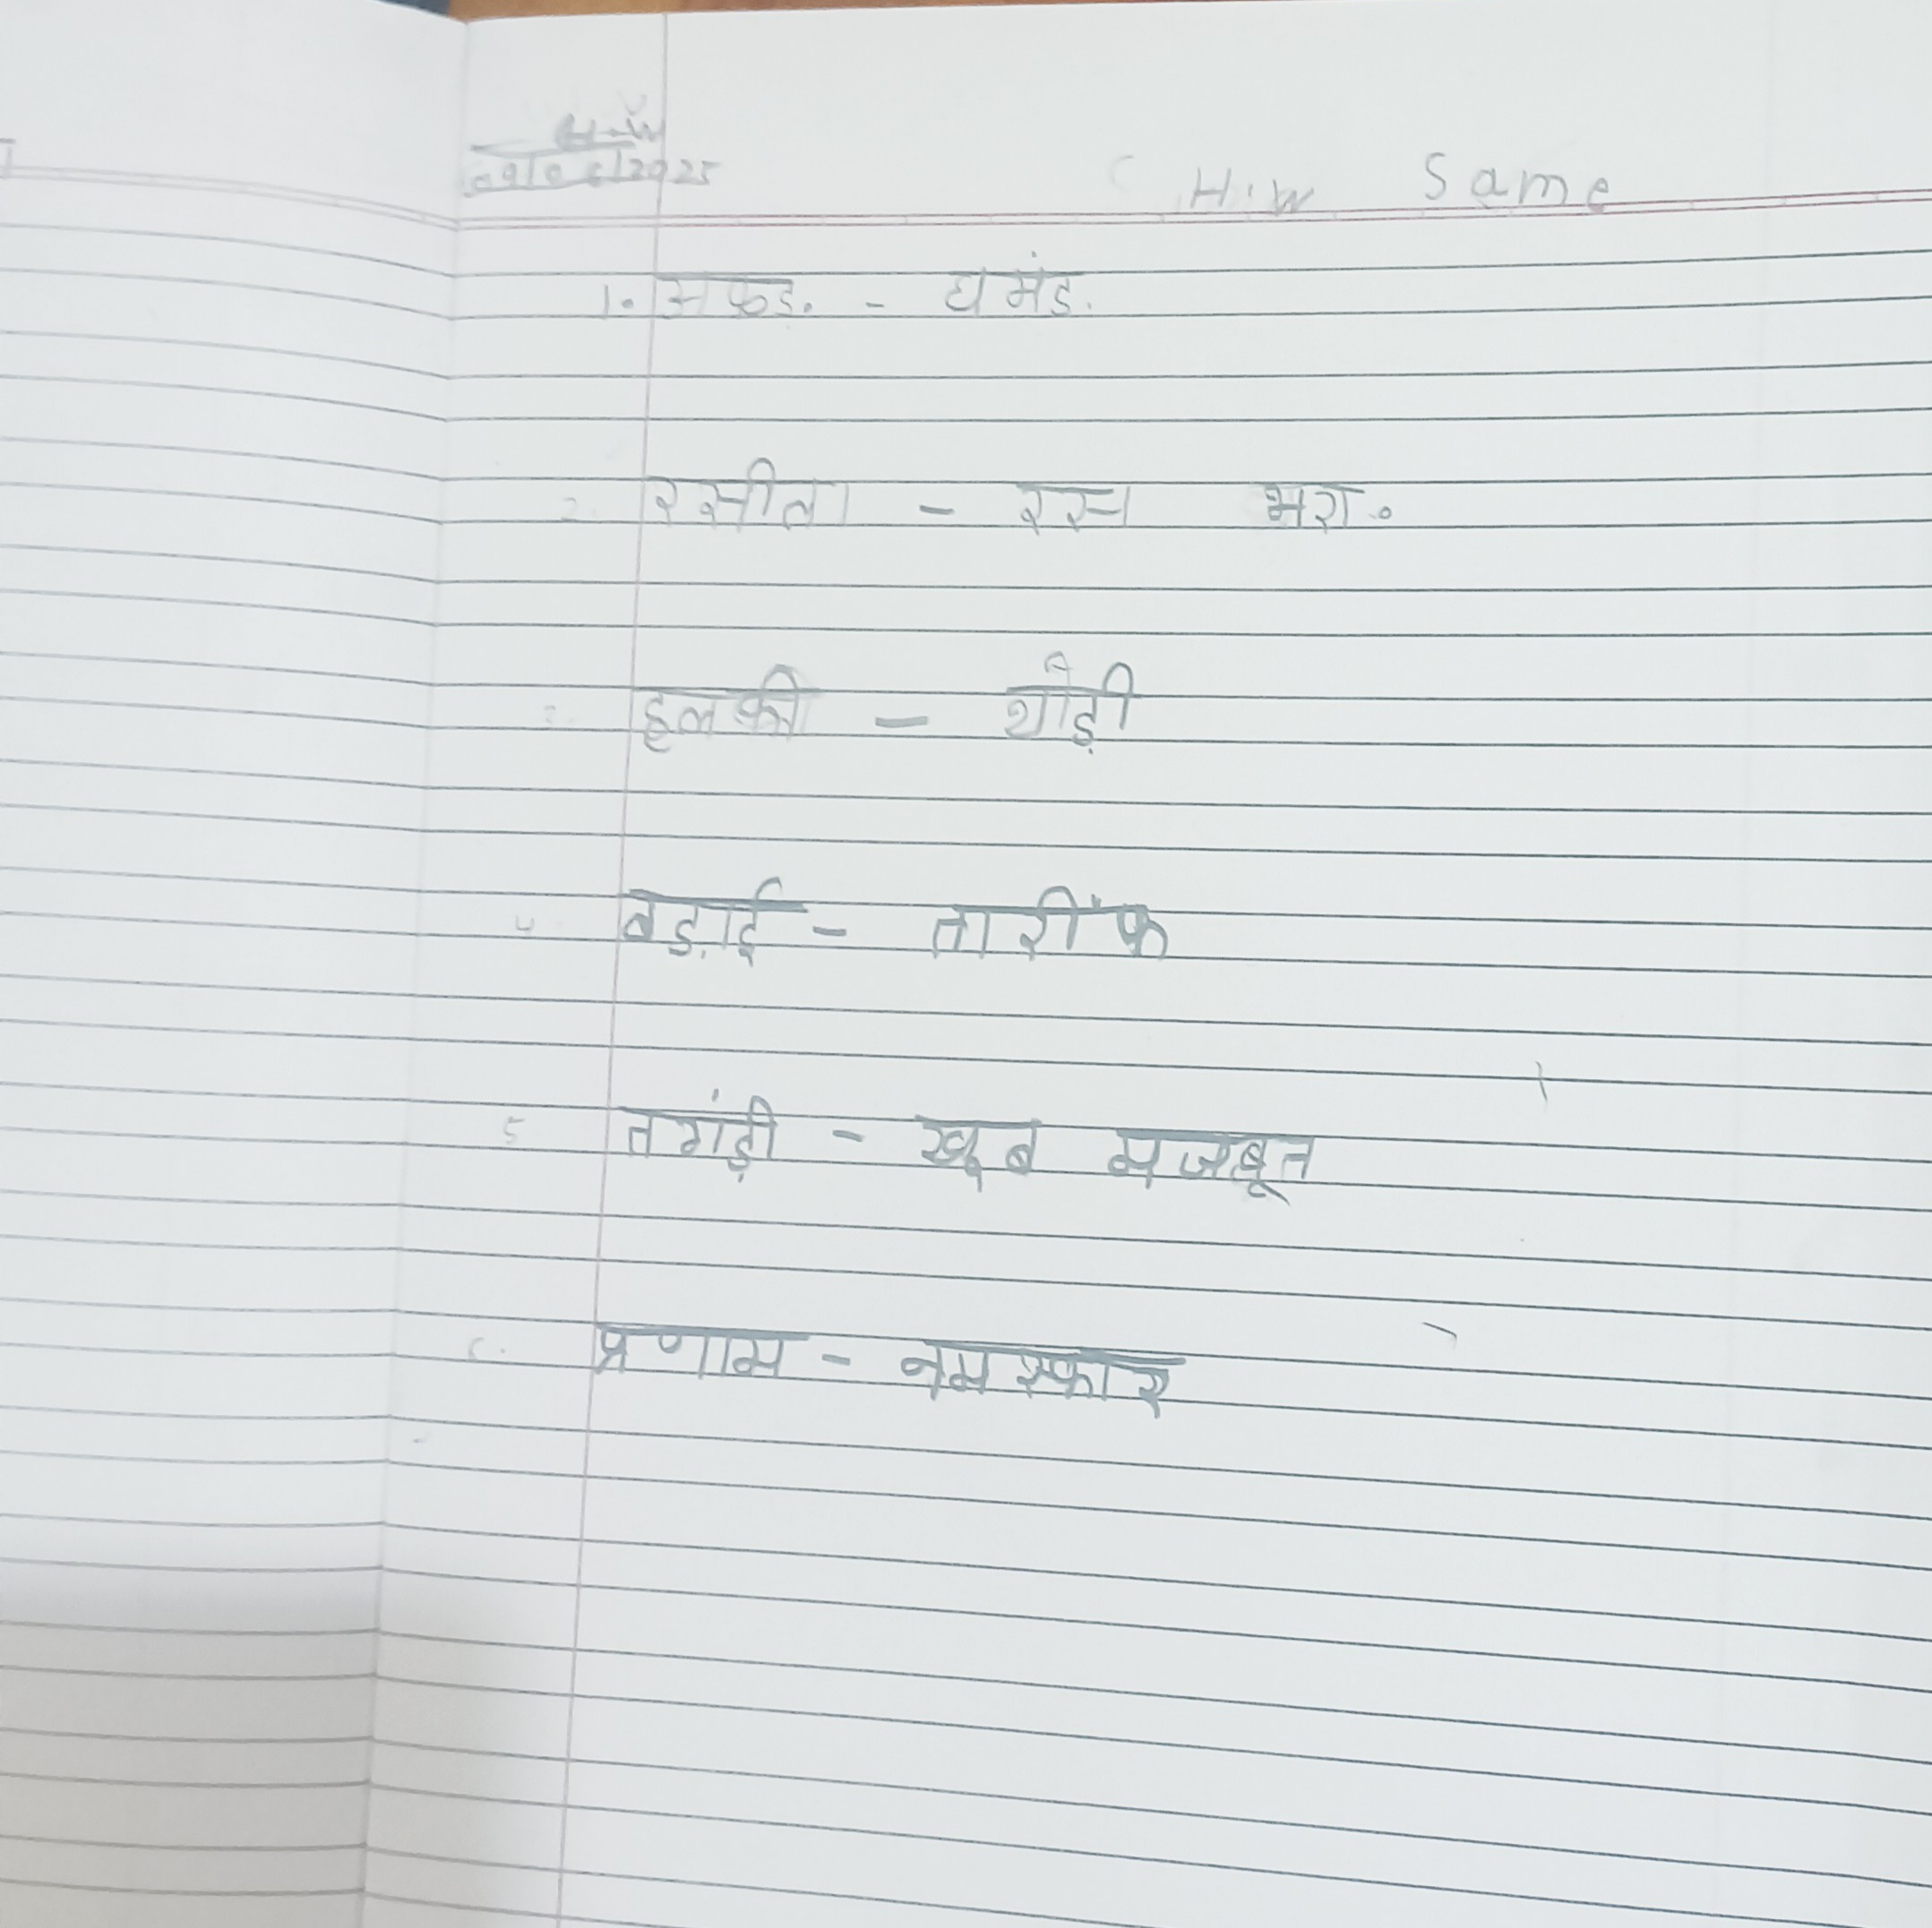 H.W Same
1. अकड. - घमंड.
2. रसीला - रस भरा.
हलकी - थोड़ी
4 बड़ाई - तारीफ
5 तगंड़ी - खूब मजबूत
6. प्रणाम - नमस्कार